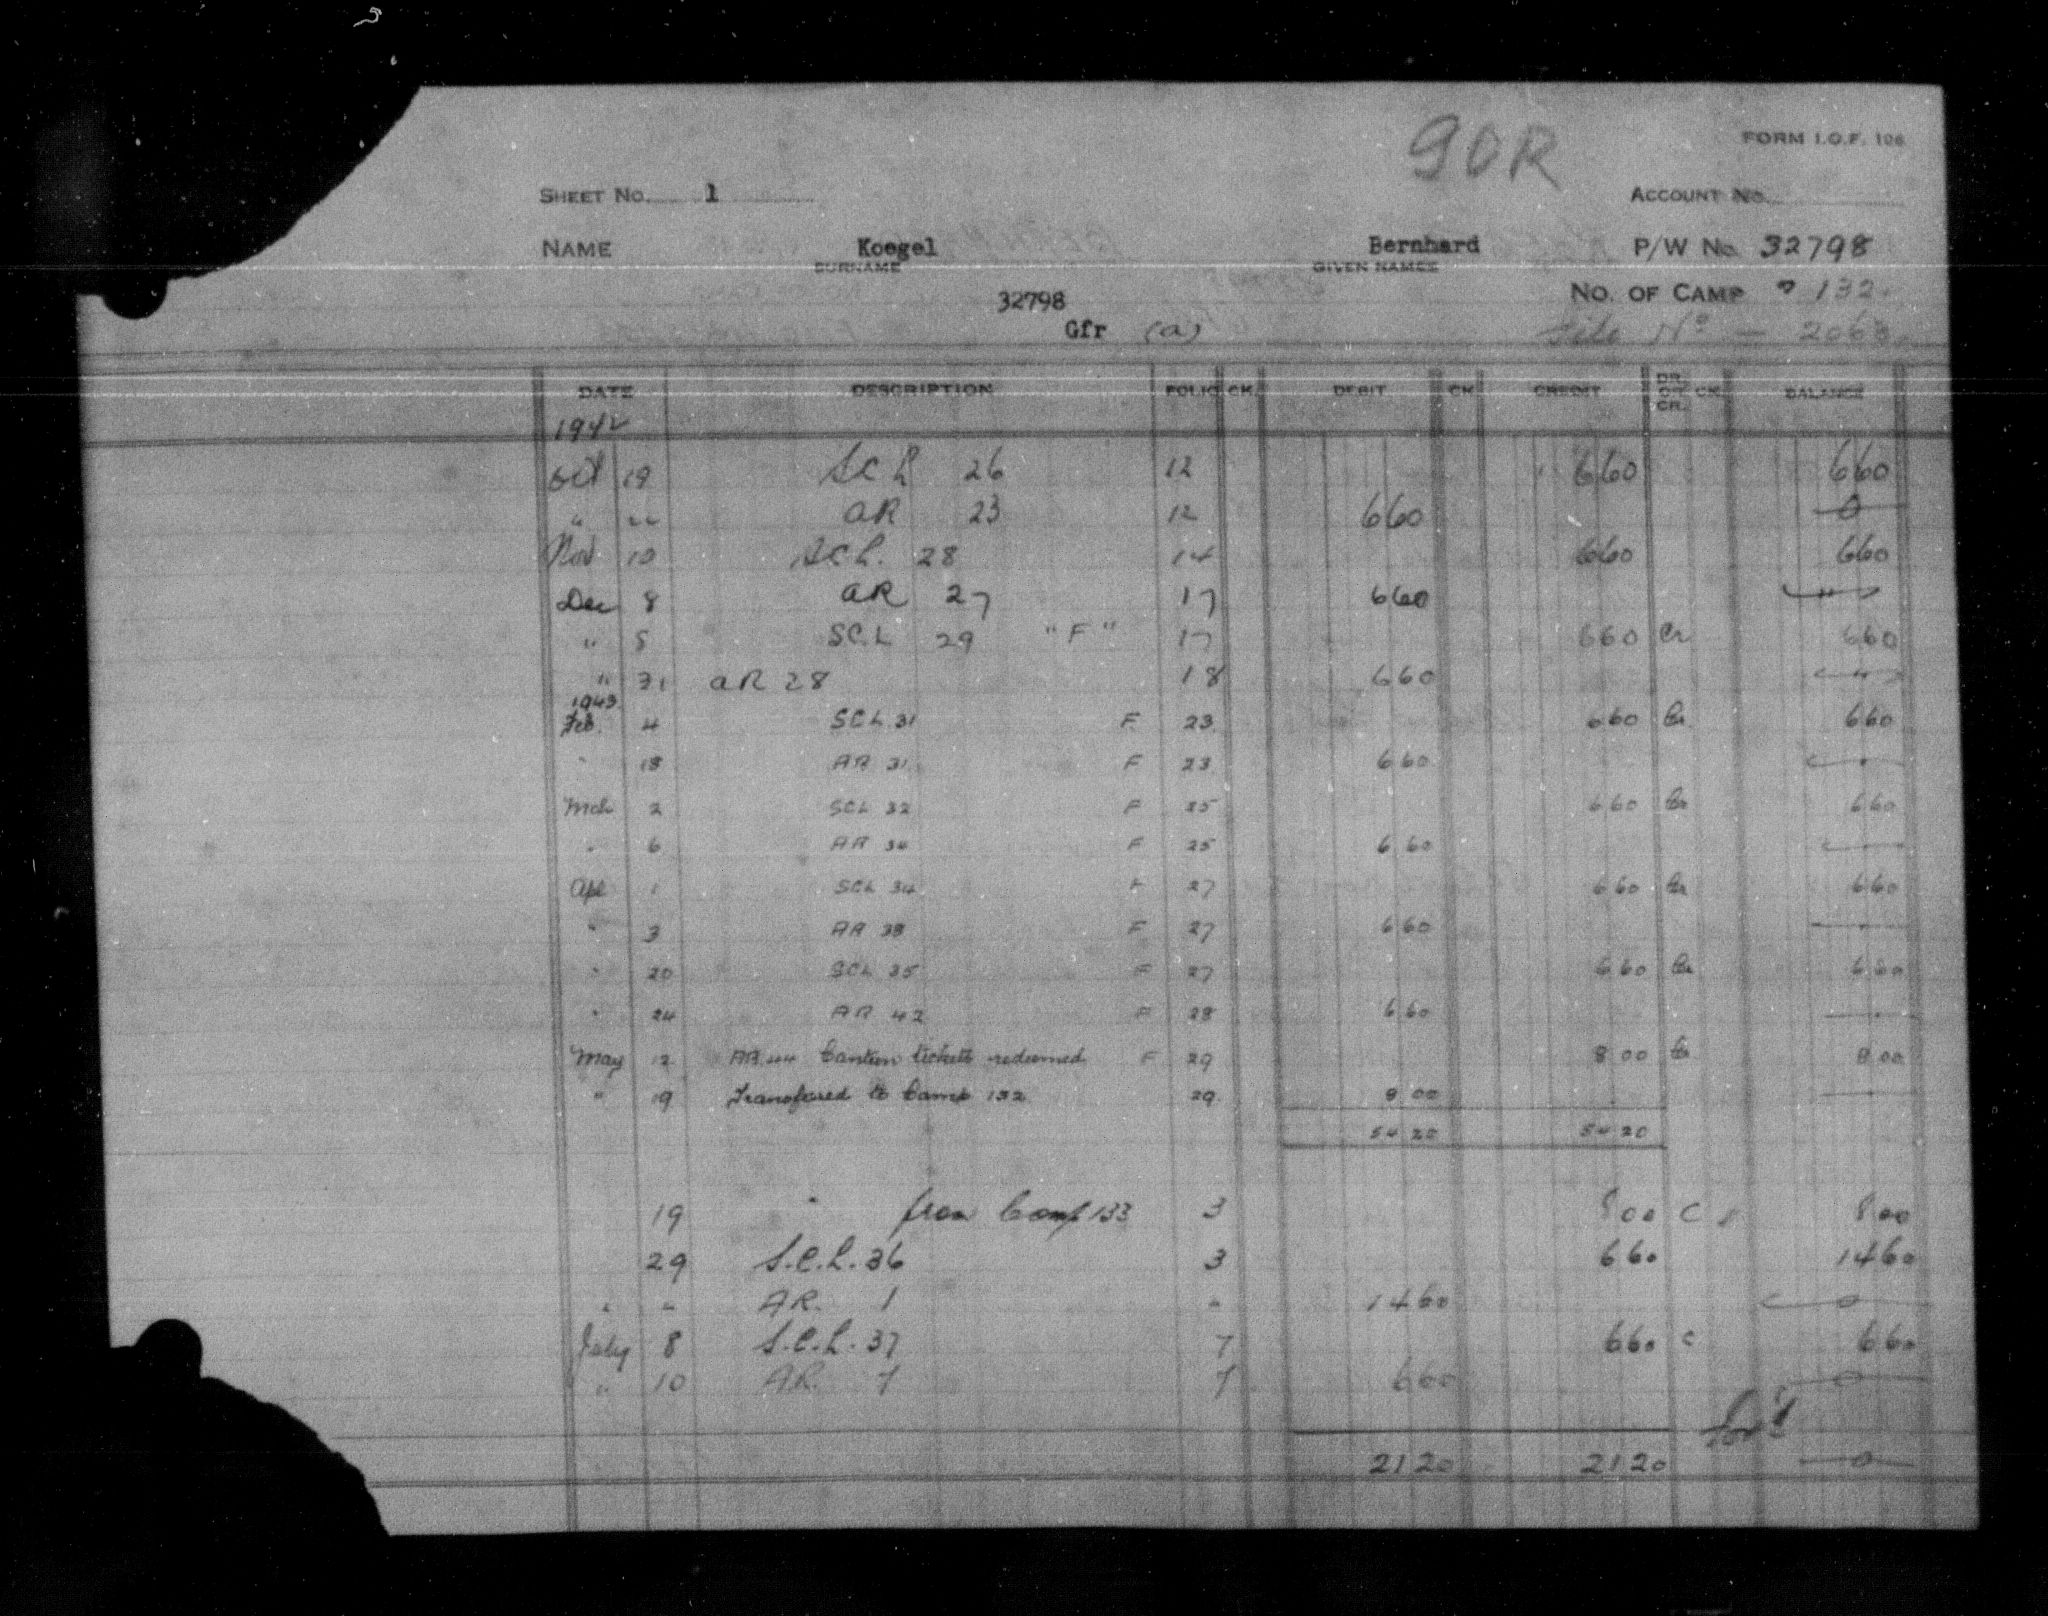 90R
FORM I.O.F. 106
SHEET No. 1 ACCOUNT No.
NAME Koegel Bernhard P/W No. 32798
SURNAME GIVEN NAMES
32798 No. OF CAMP 132.
Gfr (a) File No - 2068
DATE DESCRIPTION FOLIO CK. DEBIT CK CREDIT DR. OR CR. CK. BALANCE
1942
Oct 19 SCL 26 12 660 660
" 22 AR 23 12 660 0
Nov 10 SCL. 28 14 660 660
Dec 8 AR 27 17 660 "
" 8 SC.L 29 "F" 17 660 Cr 660
" 31 AR 28 18 660
1943
Feb. 4 SCL 31 F 23 660 Cr 660
" 18 AR 31 F 23 660
Mch 2 SCL 32 F 25 660 Cr 660
" 6 AR 34 F 25 660
Apl 1 SCL 34 F 27 660 Cr 660
" 3 AR 38 F 27 660
" 20 SCL 35 F 27 660 Cr 660
" 24 AR 42 F 28 660
May 12 AR.44 Canteen tickets redeemed F 29 8 00 Cr 8 00
" 19 Transfered to Camp 132 29 8 00
54 20 54 20
19 " from Camp 133 3 8 00 C 8 00
29 S.C.L. 36 3 660 1460
" " AR. 1 " 1460 0
July 8 S.C.L. 37 7 660 C 660
" 10 AR. 7 7 660 0
2120 2120 0